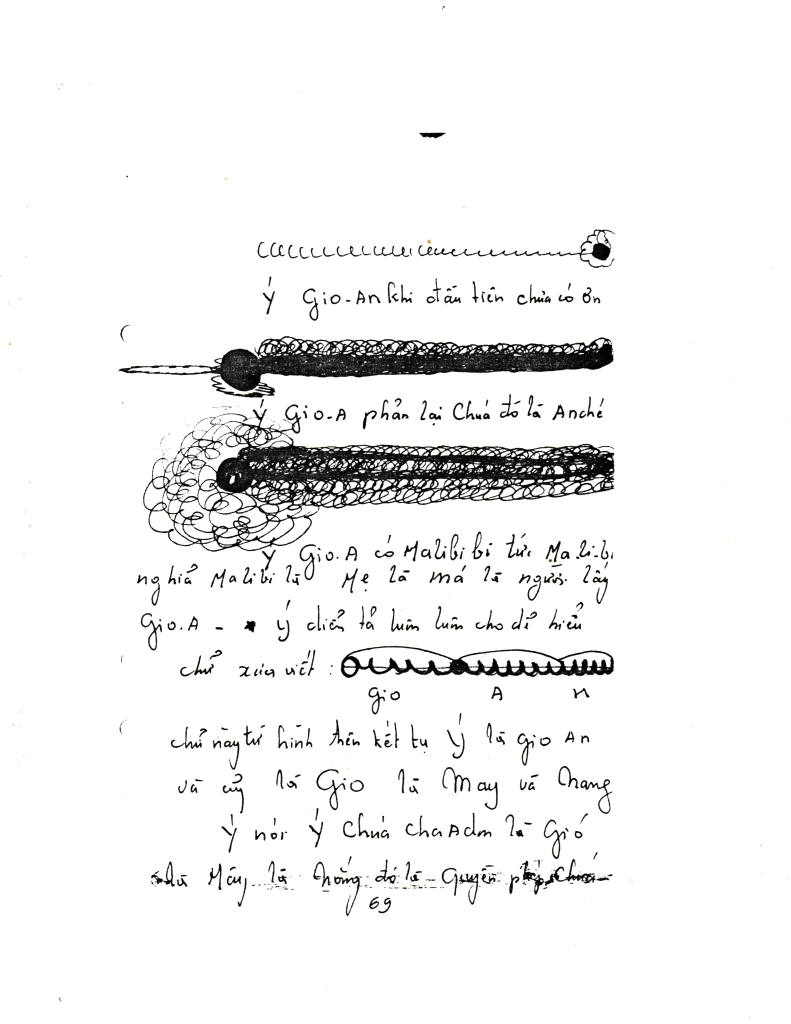 Ý Gio-An khi đầu tiên chưa có ơn
Ý Gio-A phản lại Chúa đó là Anché
Ý Gio.A có Malibi bi tức Ma-li-bi
nghiả Malibi là Mẹ là má là người lấy
Gio.A - Ý diển tả luôn luôn cho dể hiểu
chử xưa viết :
Gio A N
chử này từ hình trên kết tụ Ý là Gio An
và củ là Gio là May và Nang
Ý nói Ý Chúa cha Adon là Gió
là Mây là Nắng đó là Quyền phép Chúa
69